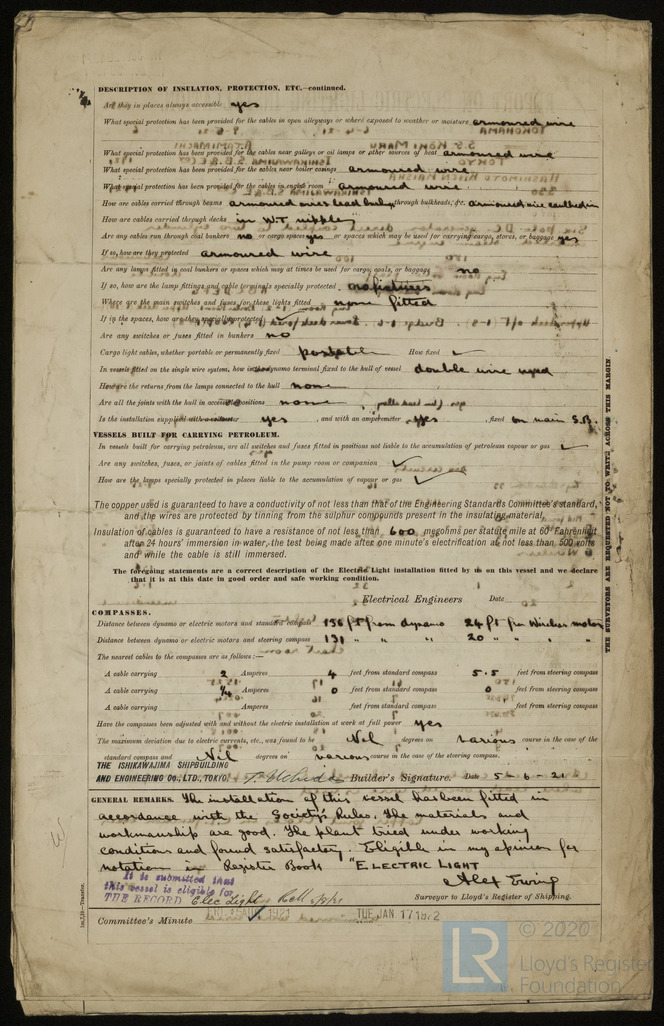 DESCRIPTION OF INSULATION, PROTECTION, ETC.—continued.
Are they in places always accessible yes
What special protection has been provided for the cables in open alleyways or where exposed to weather or moisture armoured wire
What special protection has been provided for the cables near galleys or oil lamps or other sources of heat armoured wire
What special protection has been provided for the cables near boiler casings armoured wire
What special protection has been provided for the cables in engine room armoured wire
How are cables carried through beams armoured wires lead bush through bulkheads, &c. armoured wire
How are cables carried through decks in W.T. nipple
Are any cables run through coal bunkers no or cargo spaces yes or spaces which may be used for carrying cargo, stores, or baggage yes
If so, how are they protected armoured wire
Are any lamps fitted in coal bunkers or spaces which may at times be used for cargo, coals, or baggage no
If so, how are the lamp fittings and cable terminals specially protected no fixtures
Where are the main switches and fuses for these lights fitted none fitted
If in the spaces, how are they specially protected
Are any switches or fuses fitted in bunkers no
Cargo light cables, whether portable or permanently fixed portable How fixed
In vessels fitted on the single wire system, how is the dynamo terminal fixed to the hull of vessel double wire used
How are the returns from the lamps connected to the hull none
Are all the joints with the hull in accessible positions none
Is the installation supplied with a voltmeter yes , and with an amperemeter yes , fixed on main S.B.
VESSELS BUILT FOR CARRYING PETROLEUM.
In vessels built for carrying petroleum, are all switches and fuses fitted in positions not liable to the accumulation of petroleum vapour or gas
Are any switches, fuses, or joints of cables fitted in the pump room or companion
How are the lamps specially protected in places liable to the accumulation of vapour or gas
The copper used is guaranteed to have a conductivity of not less than that of the Engineering Standards Committee's standard,
and the wires are protected by tinning from the sulphur compounds present in the insulating material.
Insulation of cables is guaranteed to have a resistance of not less than 600 megohms per statute mile at 60° Fahrenheit
after 24 hours' immersion in water, the test being made after one minute's electrification at not less than 500 volts
and while the cable is still immersed.
The foregoing statements are a correct description of the Electric Light installation fitted by us on this vessel and we declare
that it is at this date in good order and safe working condition.
Electrical Engineers Date
COMPASSES.
Distance between dynamo or electric motors and standard compass 156 ft from dynamo 24 ft fm Wireless motor
Distance between dynamo or electric motors and steering compass 131 " " " 20 " " "
The nearest cables to the compasses are as follows:—
A cable carrying 2 Amperes 4 feet from standard compass 5.5 feet from steering compass
A cable carrying 1/4 Amperes 0 feet from standard compass 0 feet from steering compass
A cable carrying Amperes feet from standard compass feet from steering compass
Have the compasses been adjusted with and without the electric installation at work at full power yes
The maximum deviation due to electric currents, etc., was found to be Nil degrees on various course in the case of the
standard compass and Nil degrees on various course in the case of the steering compass.
THE ISHIKAWAJIMA SHIPBUILDING
AND ENGINEERING CO., LTD., TOKYO. Builder's Signature. Date 5-6-21
GENERAL REMARKS. The installation of this vessel has been fitted in
accordance with the Society's Rules. The materials and
workmanship are good. The plant tried under working
conditions and found satisfactory. Eligible in my opinion for
notation in Register Book "ELECTRIC LIGHT
It is submitted that
this vessel is eligible for
THE RECORD Elec Light
Alex Ewing
Surveyor to Lloyd's Register of Shipping.
Committee's Minute TUE JAN 17 1922
THE SURVEYORS ARE REQUESTED NOT TO WRITE ACROSS THIS MARGIN.
LR
© 2020
Lloyd's Register
Foundation